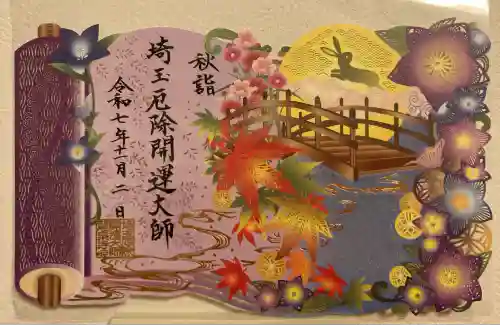 秋詣
埼玉厄除開運大師
令和七年十一月二日